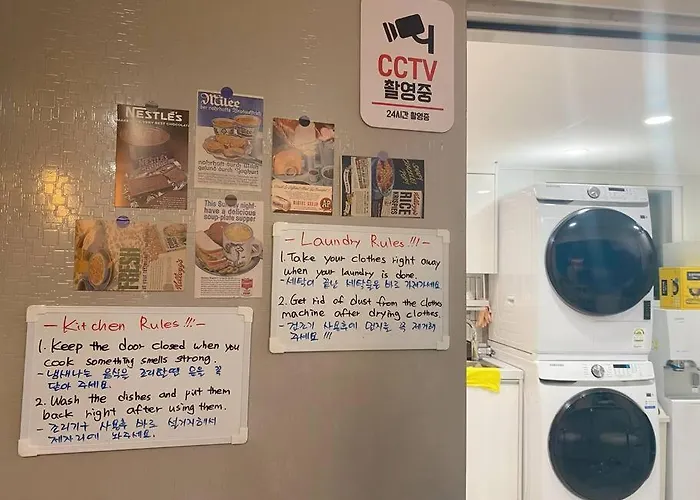 CCTV
촬영중
24시간 촬영중
NESTLÉ'S
VERY BEST CHOCOLATE
Milee
der nahrhafte
nahrhaft durch Milch
gesund durch
AP
RICE
FRESH
Kellogg's
This Sunday night-
have a delicious
soup-plate supper
- Laundry Rules !!! -
1. Take your clothes right away
when your laundry is done.
- 세탁이 끝난 세탁물은 바로 가져가세요
2. Get rid of dust from the clothes
machine after drying clothes.
- 건조기 사용후에 먼지를 꼭 제거해
주세요 !!!
- Kitchen Rules !!! -
1. Keep the door closed when you
cook something smells strong.
- 냄새나는 음식은 조리할땐 문을 꼭
닫아 주세요.
2. Wash the dishes and put them
back right after using them.
- 조리기구 사용후 바로 설거지해서
제자리에 놔주세요.